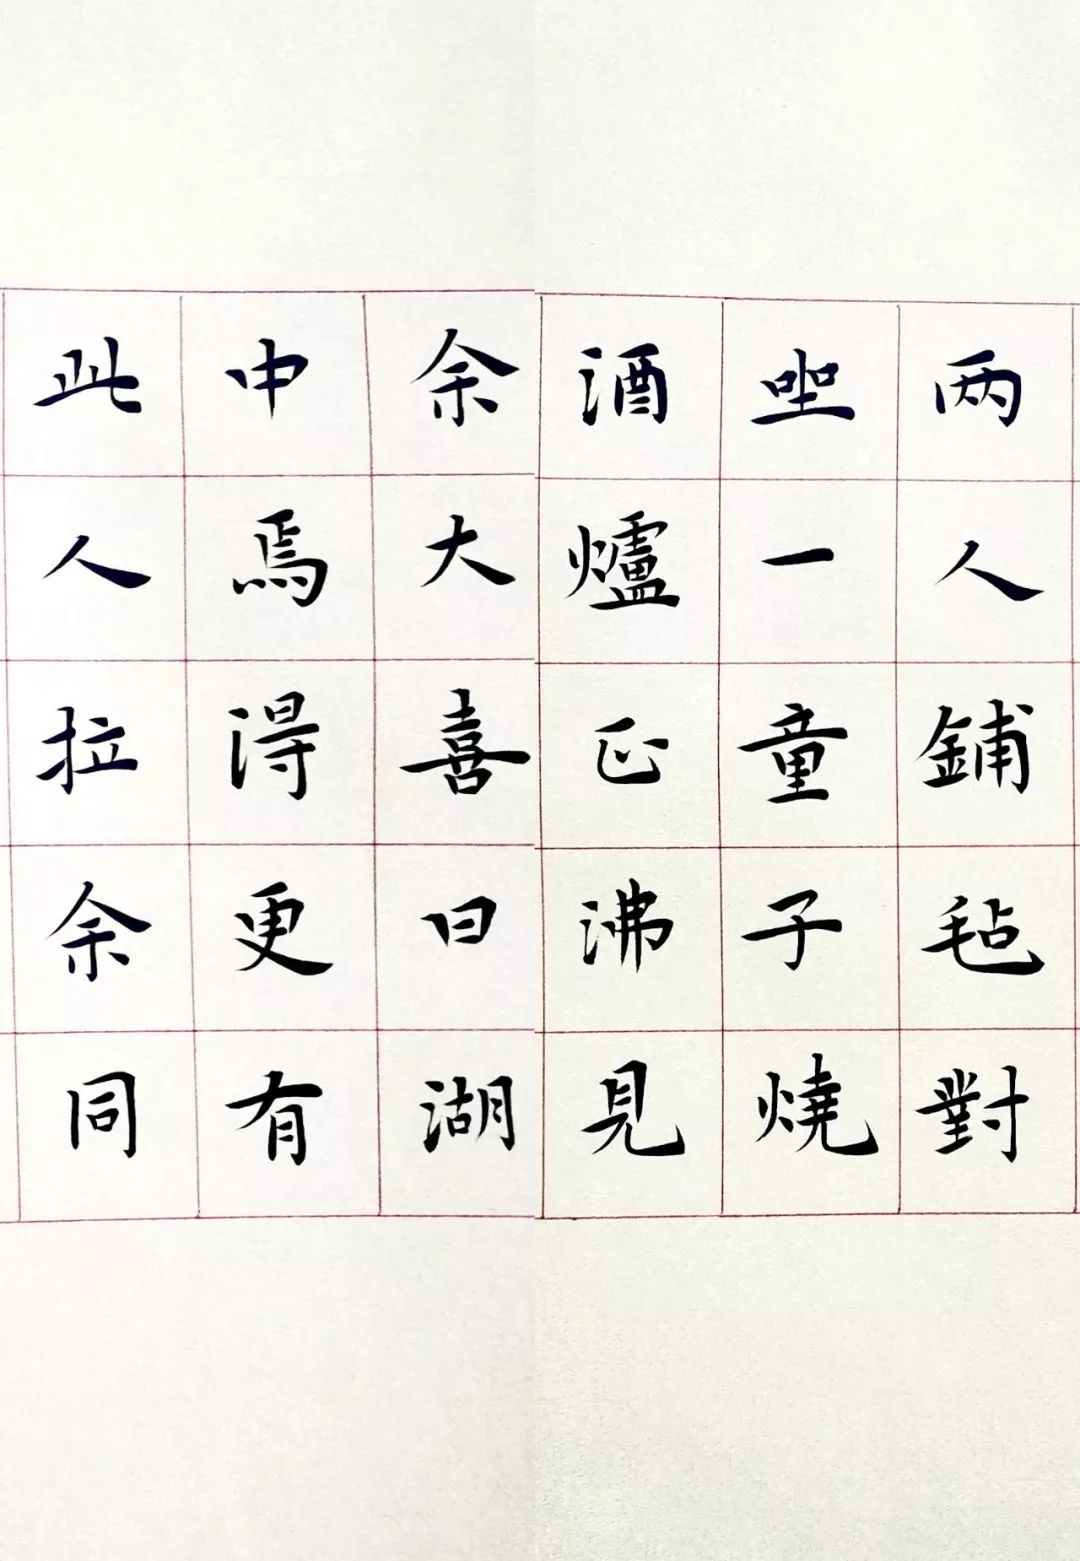 两人鋪毡對
坐一童子燒
酒爐正沸見
余大喜曰湖
中焉得更有
此人拉余同